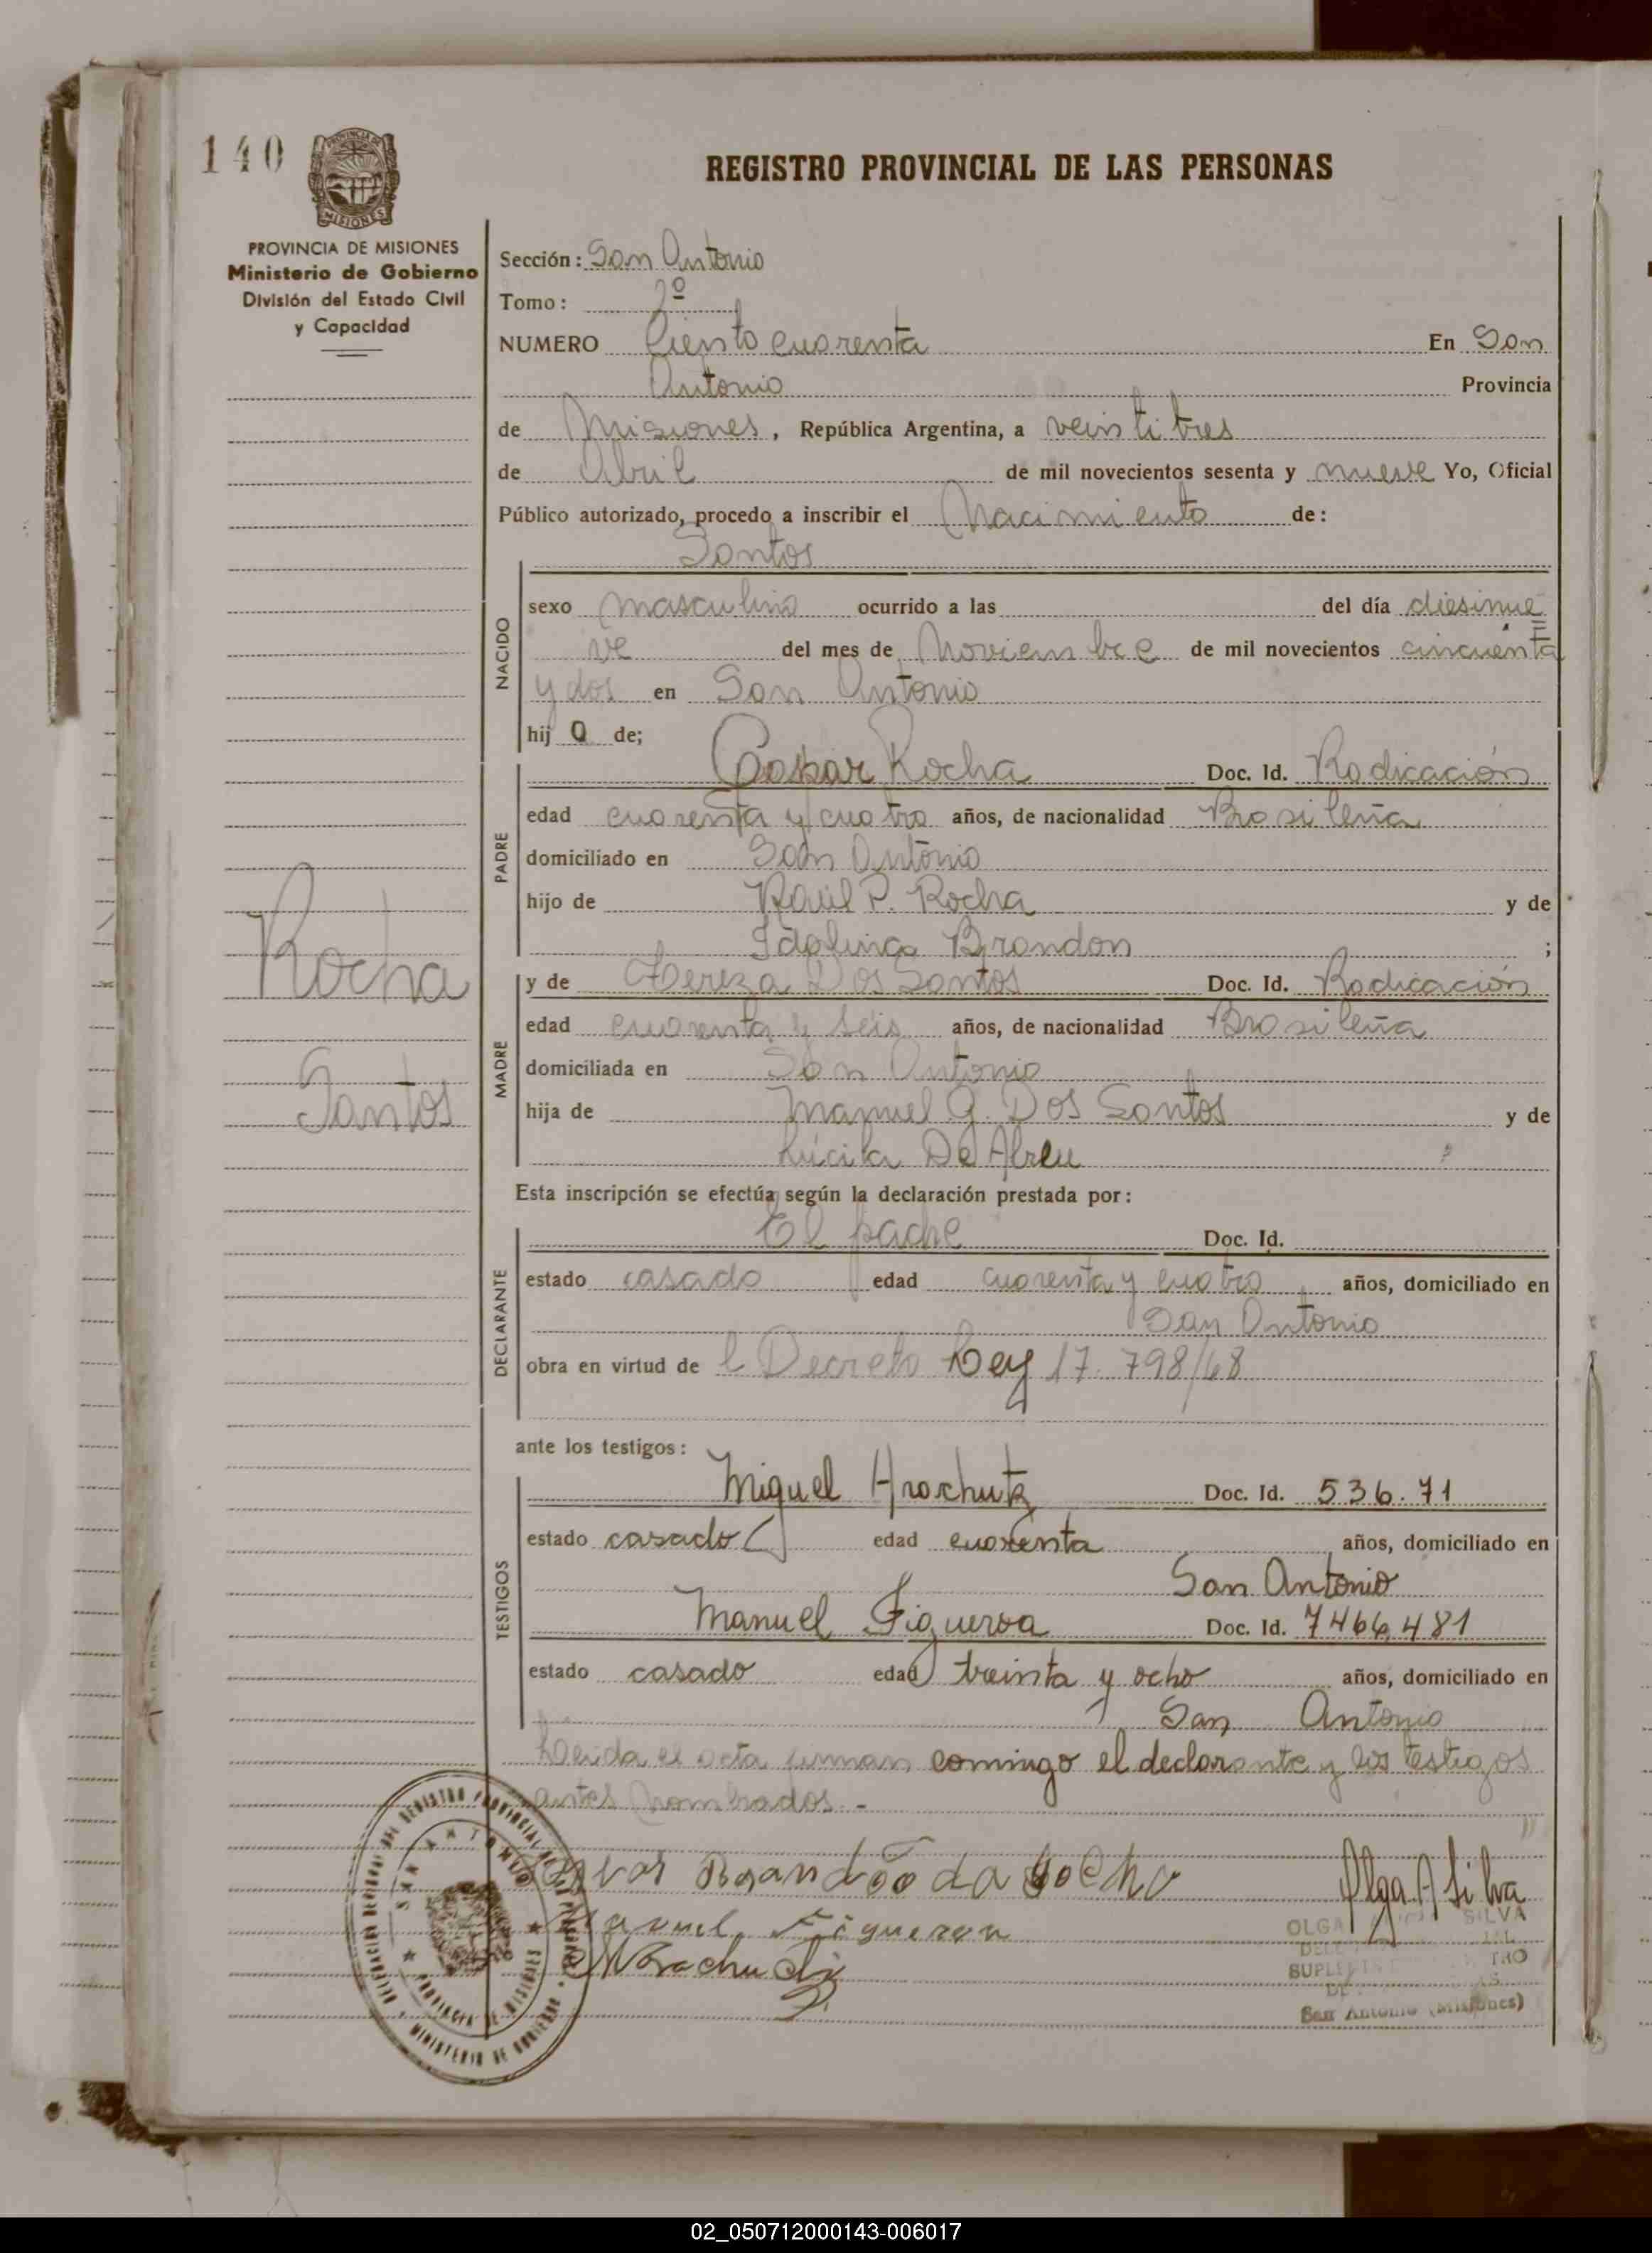 140
PROVINCIA DE MISIONES
MISIONES
PROVINCIA DE MISIONES
Ministerio de Gobierno
División del Estado Civil
y Capacidad
REGISTRO PROVINCIAL DE LAS PERSONAS
Sección: San Antonio
Tomo: 2º
NUMERO Ciento cuarenta En San
Antonio Provincia
de Misiones, República Argentina, a veintitres
de Abril de mil novecientos sesenta y nueve Yo, Oficial
Público autorizado, procedo a inscribir el Nacimiento de:
Santos
NACIDO
sexo masculino ocurrido a las del día diesinue
ve del mes de Noviembre de mil novecientos cincuenta
y dos en San Antonio
hij o de;
PADRE
Gaspar Rocha Doc. Id. Radicación
edad cuarenta y cuatro años, de nacionalidad Brasileña
domiciliado en San Antonio
hijo de Raúl P. Rocha y de
Idalinca Brandon ;
MADRE
y de Tereza Dos Santos Doc. Id. Radicación
edad cuarenta y seis años, de nacionalidad Brasileña
domiciliada en San Antonio
hija de Manuel G. Dos Santos y de
Lucila De Abreu ;
Rocha
Santos
Esta inscripción se efectúa según la declaración prestada por:
DECLARANTE
El padre Doc. Id.
estado casado edad cuarenta y cuatro años, domiciliado en
San Antonio
obra en virtud de l Decreto Ley 17.798/68
ante los testigos:
TESTIGOS
Miguel Hrochutz Doc. Id. 536.71
estado casado edad cuarenta años, domiciliado en
San Antonio
Manuel Figueroa Doc. Id. 7466481
estado casado edad treinta y ocho años, domiciliado en
San Antonio
Leida el acta firman comingo el declarante y los testigos
antes nombrados.-
Brandão da Rocha
Manuel Figueroa
Olga A Silva
OLGA SILVA
San Antonio (Misiones)
SAN ANTONIO
PROVINCIA DE MISIONES
MINISTERIO DE GOBIERNO
02_050712000143-006017